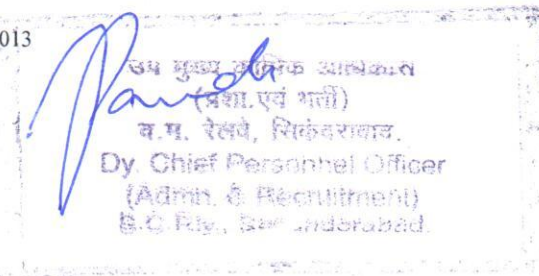 013
उप मुख्य कार्मिक अधिकारी
(प्रशा.एवं भर्ती)
द.म. रेलवे, सिकंदराबाद.
Dy. Chief Personnel Officer
(Admn. & Recruitment)
S.C.Rly., Secunderabad.